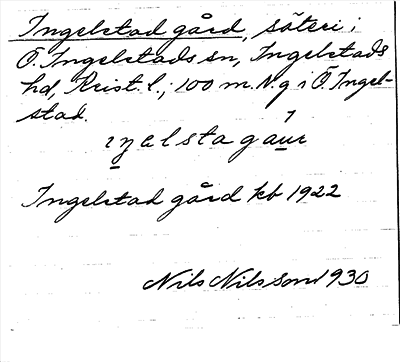 Ingelstad gård, säteri i
Ö. Ingelstads sn, Ingelstads
hd, Krist. l.; 100 m. N. g i Ö. Ingel-
stad.
ɪŋəlstagaur
Ingelstad gård kb 1922
Nils Nilsson 1930